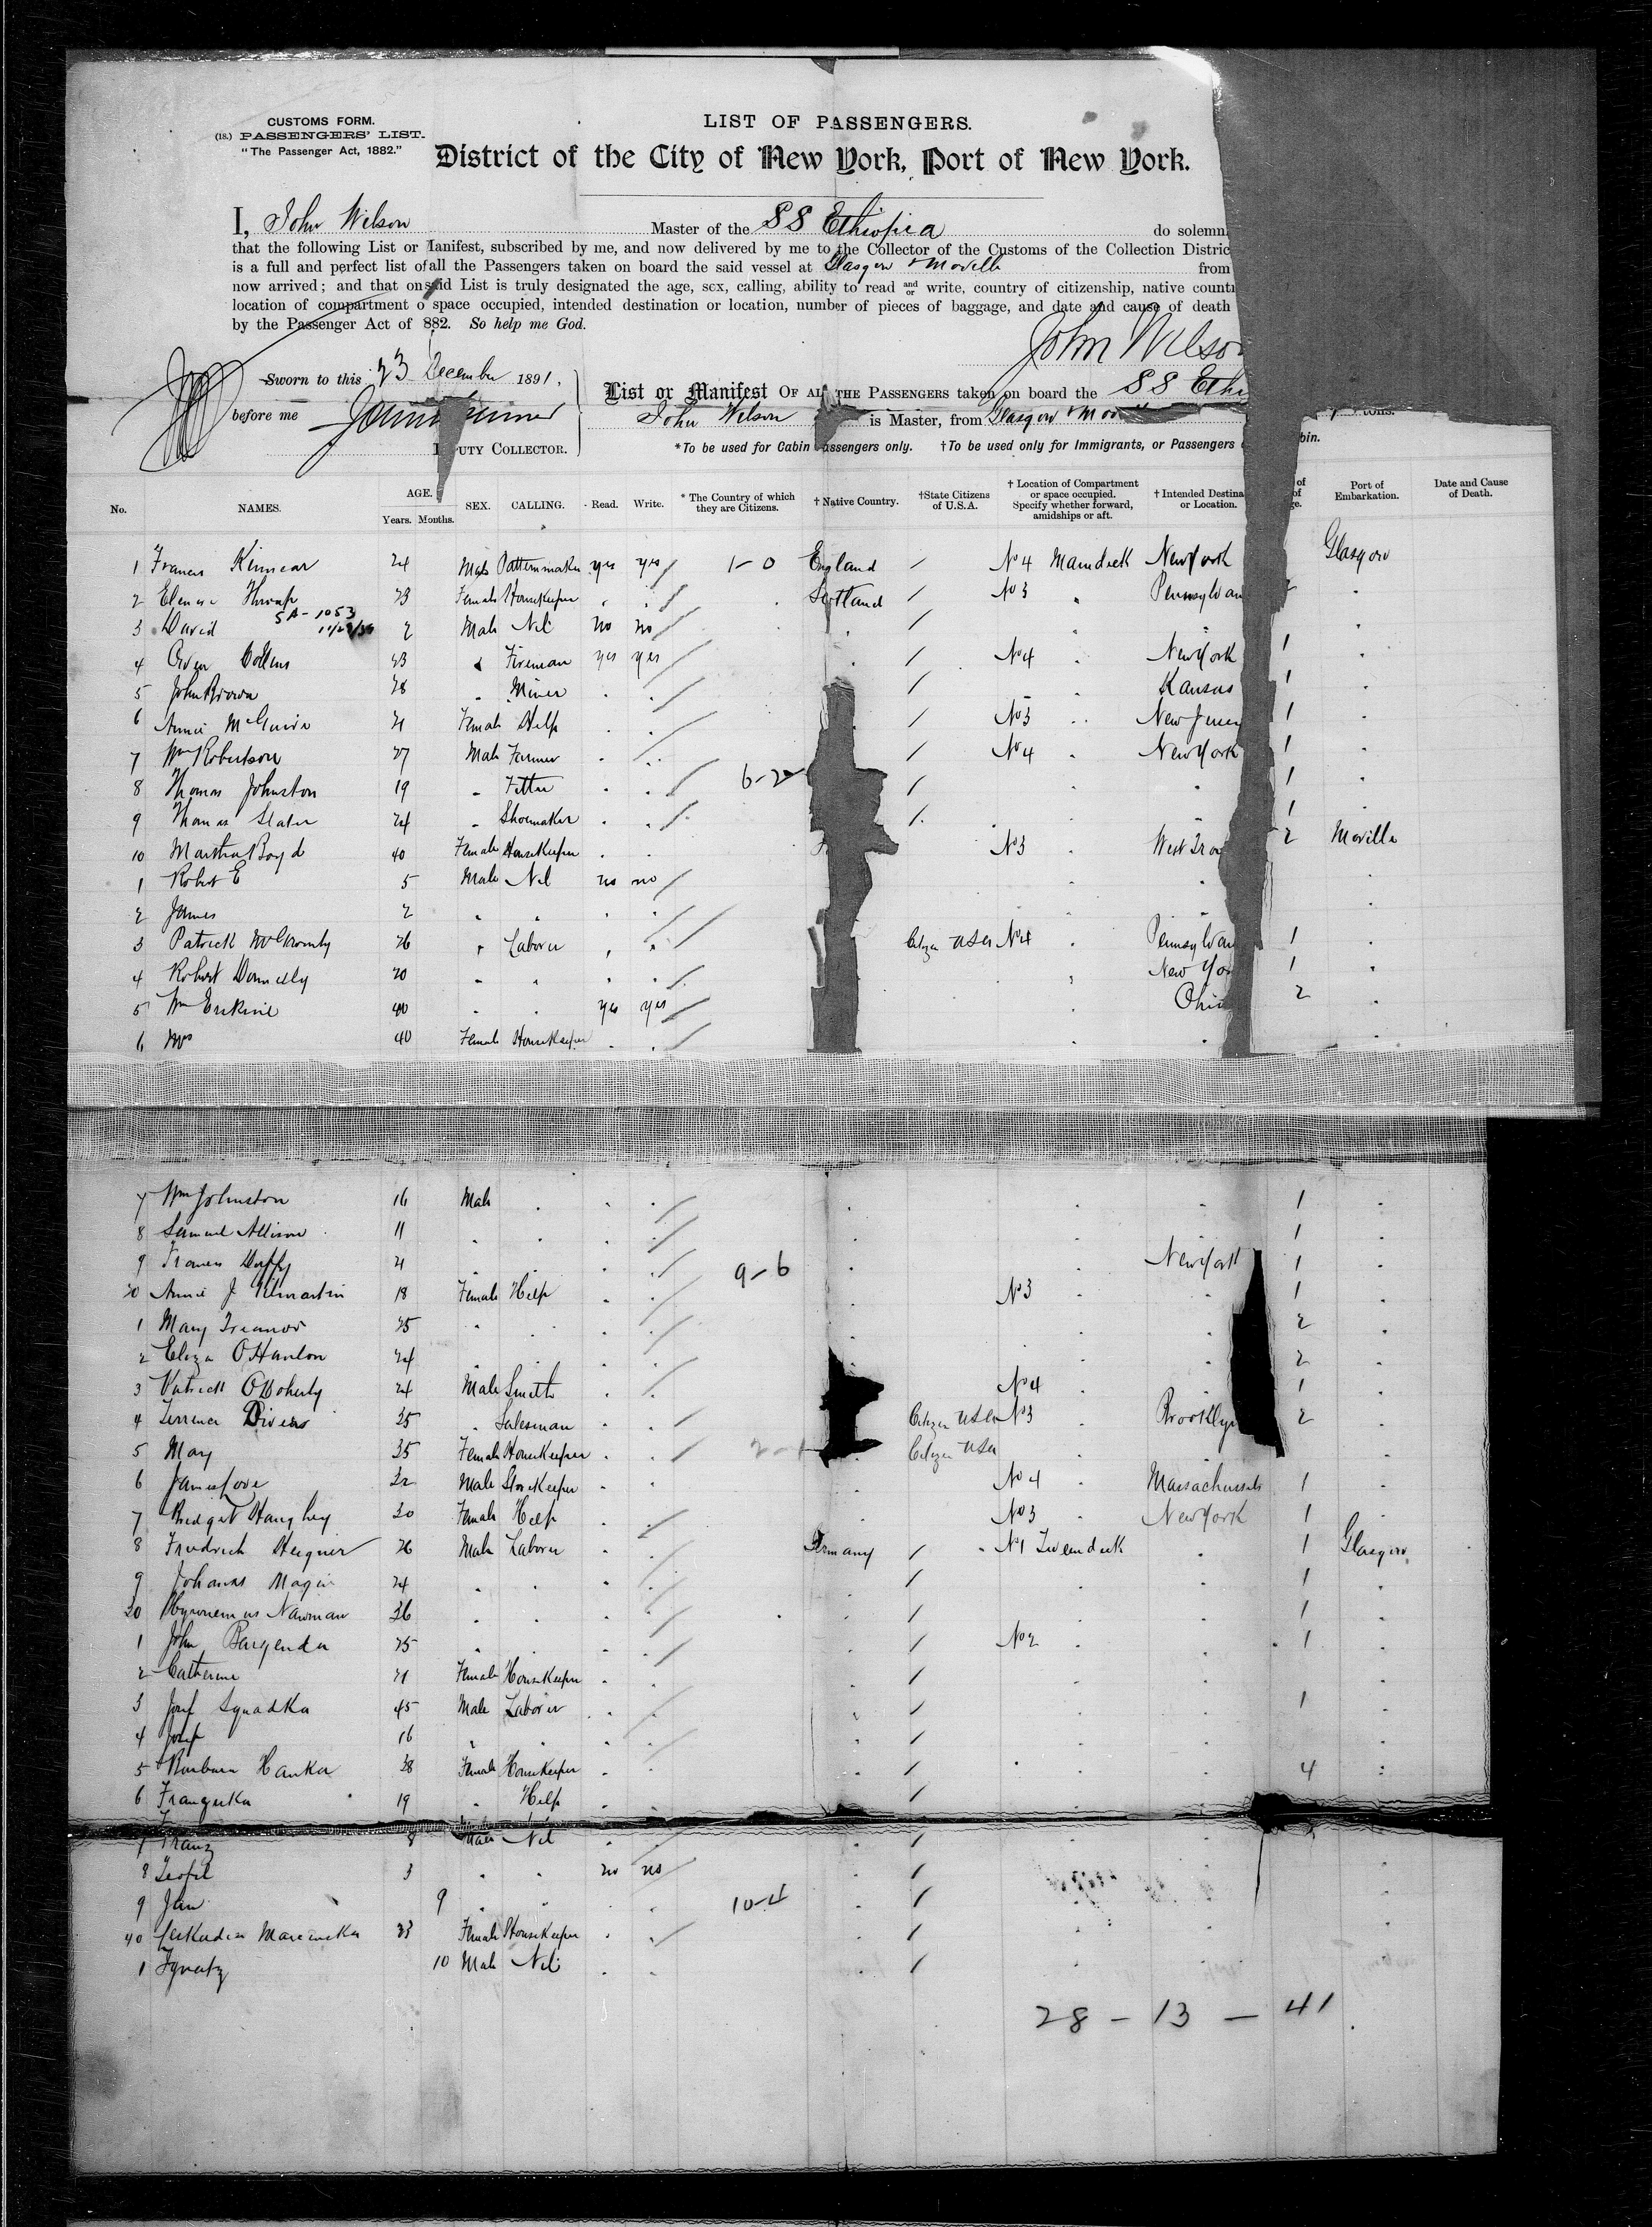 CUSTOMS FORM.
(18.) PASSENGERS' LIST.
"The Passenger Act, 1882."
LIST OF PASSENGERS.
District of the City of New York, Port of New York.
I, John Wilson Master of the SS Ethiopia do solemn
that the following List or Manifest, subscribed by me, and now delivered by me to the Collector of the Customs of the Collection Distric
is a full and perfect list of all the Passengers taken on board the said vessel at Glasgow & Moville from
now arrived; and that on said List is truly designated the age, sex, calling, ability to read and/or write, country of citizenship, native count
location of compartment o space occupied, intended destination or location, number of pieces of baggage, and date and cause of death
by the Passenger Act of 882. So help me God.
John Wilson
Sworn to this 23 December 1891.
before me
UTY COLLECTOR.
List or Manifest OF AL THE PASSENGERS taken on board the SS Ethi
John Wilson is Master, from Glasgow & Mov tons.
*To be used for Cabin Passengers only. †To be used only for Immigrants, or Passengers bin.
No. NAMES. AGE. Years. Months. SEX. CALLING. Read. Write. * The Country of which they are Citizens. † Native Country. †State Citizens of U.S.A. † Location of Compartment or space occupied. Specify whether forward, amidships or aft. † Intended Destina or Location. of of ge. Port of Embarkation. Date and Cause of Death.
1 Francis Kinnear 24 Male Patternmaker yes yes / 1-0 England / No 4 Maindeck New York Glasgow
2 23 Female Housekeeper . . / Scotland / No 3 " Pennsylvan 2 .
5A-1053
3 David 2 Male Nil no no / . / .
4 Owen Collins 23 " Fireman yes yes / . / No 4 . New York 1 .
5 John Brown 28 . Miner . . / / . Kansas 1 .
6 Annie McGuire 21 Female Help . . / . / No 3 . New Jersey 1 .
7 Wm Robertson 27 Male Farmer . . / / No 4 . New York 1 .
8 Thomas Johnston 19 . Fitter . . / 6-2 / . . 1 .
9 Thomas Slater 24 . Shoemaker . . / / . . 1
10 Martha Boyd 40 Female Housekeeper . . No 3 . West Troy 2 Moville
1 Robert E 5 Male Nil no no / . . .
2 James 2 . . . . / . . .
3 Patrick 26 . Laborer . . / Citizen USA No 4 . Pennsylvan 1 .
4 Robert Donnelly 20 . . . . / . New Yo 1 .
5 Wm Erskine 40 . . yes yes / . Ohio 2 .
6 Mrs 40 Female Housekeeper . . / . . .
7 Wm Johnston 16 Male . . . / . . . 1 .
8 Samuel Allison 11 . . . . / . . 1 .
9 Francis Duffy 21 . . . . / 9-6 . New York 1 .
20 Annie J Kilmartin 18 Female Help . . / . No 3 . . 1 .
1 Mary Treanor 25 . . . . / . . . 2 .
2 Eliza O'Hanlon 24 . . . . / . . 2 .
3 Patrick O'Doherty 24 Male Smith . . / No 4 . 1 .
4 Terrence Divers 35 . Salesman . . / Citizen USA No 3 . Brooklyn 2 .
5 Mary 35 Female Housekeeper . . / . Citizen USA
6 James Love 32 Male Storekeeper . . . No 4 . Massachusetts 1 .
7 Bridget Haughey 20 Female Help . . / . No 3 . New York 1 .
8 Friedrich 26 Male Laborer . . / Germany / No 1 Tweendeck . 1 Glasgow
9 Johanns 24 . . . . / . / . . 1 .
30 Nauman 36 . . . . / . / . . 1 .
1 John 25 . . . . / . / No 2 . . 1 .
2 Catherine 21 Female Housekeeper . . / . / . . .
3 Josef 45 Male Laborer . . / . / . . 1 .
4 Josef 16 . . . . / . / . . .
5 Barbara Hanka 38 Female Housekeeper . . / . / . . 4 .
6 19 . Help . . / . / . . .
7 Franz 8 Male Nil . . / . / . . .
8 Teofil 3 . . no no / . / . .
9 Jan 9 . . . . 10-4 . / . . .
40 23 Female Housekeeper . . / . / . . .
1 Ignatz 10 Male Nil . . . / . . .
28 - 13 - 41